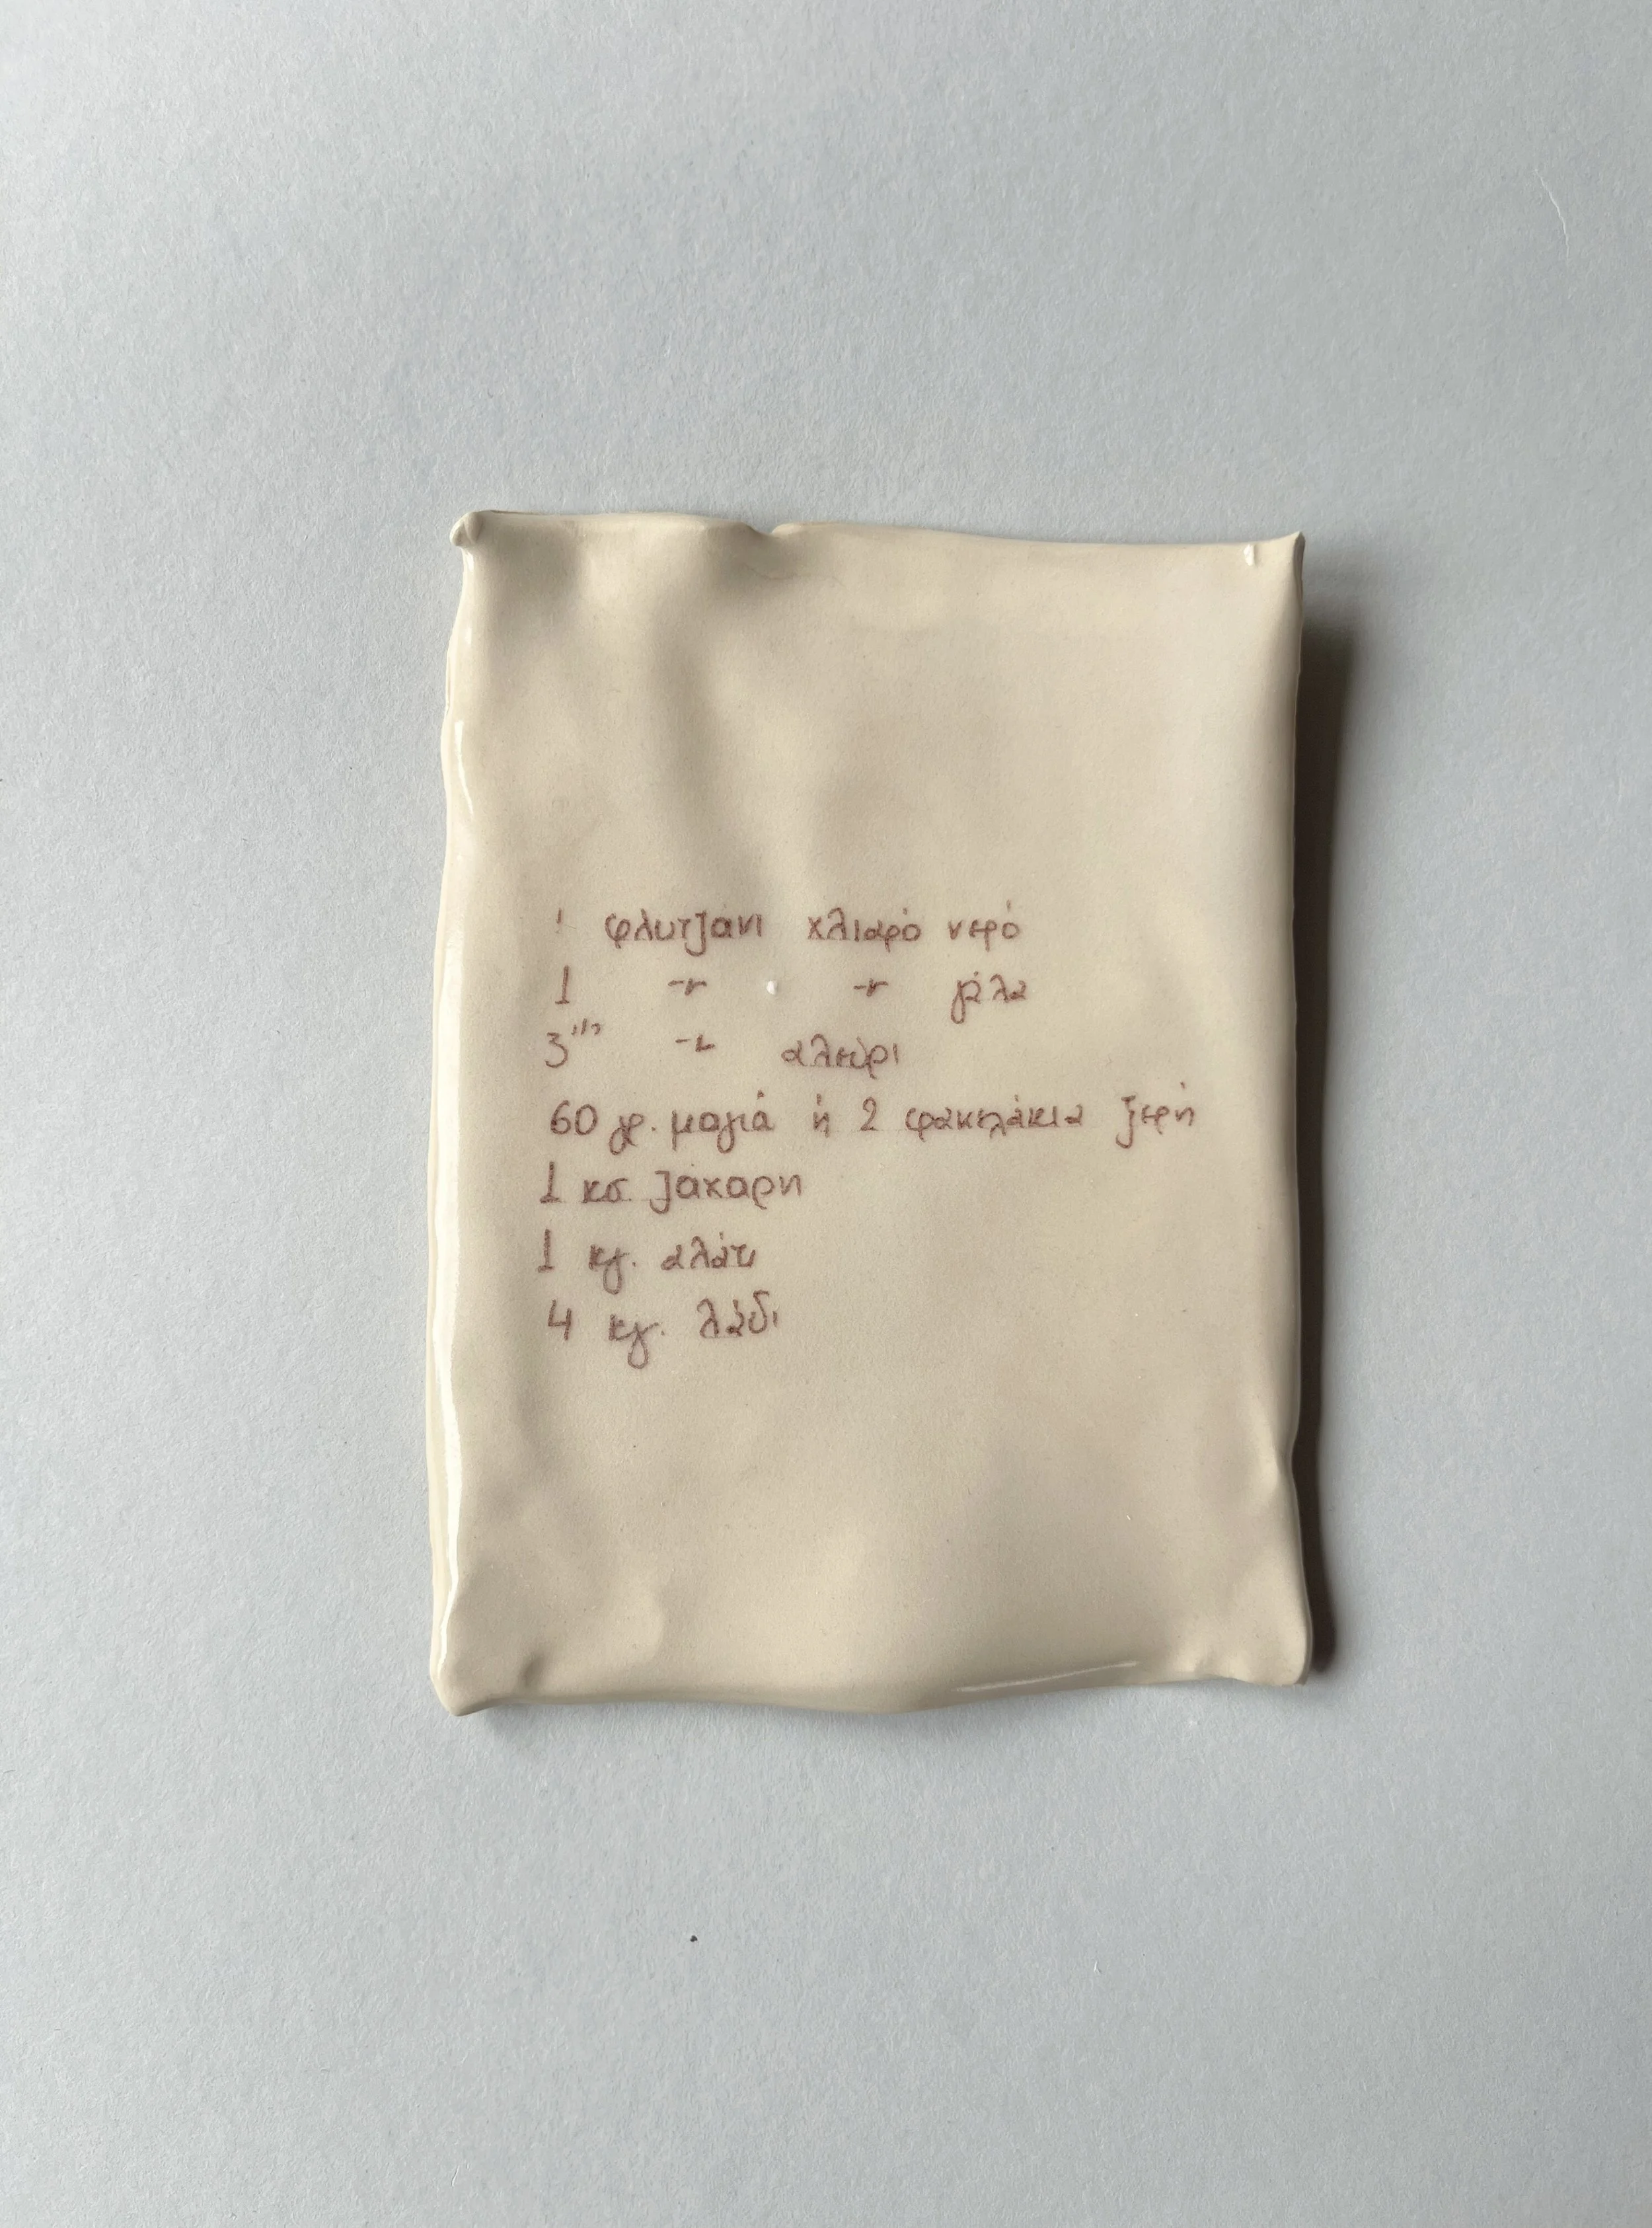 1 φλυτζάνι χλιαρό νερό
1 -〃- -〃- γάλα
3 1/2 -〃- αλεύρι
60 γρ. μαγιά ή 2 φακελάκια ξερή
1 κσ. ζάχαρη
1 κγ. αλάτι
4 κγ. λάδι